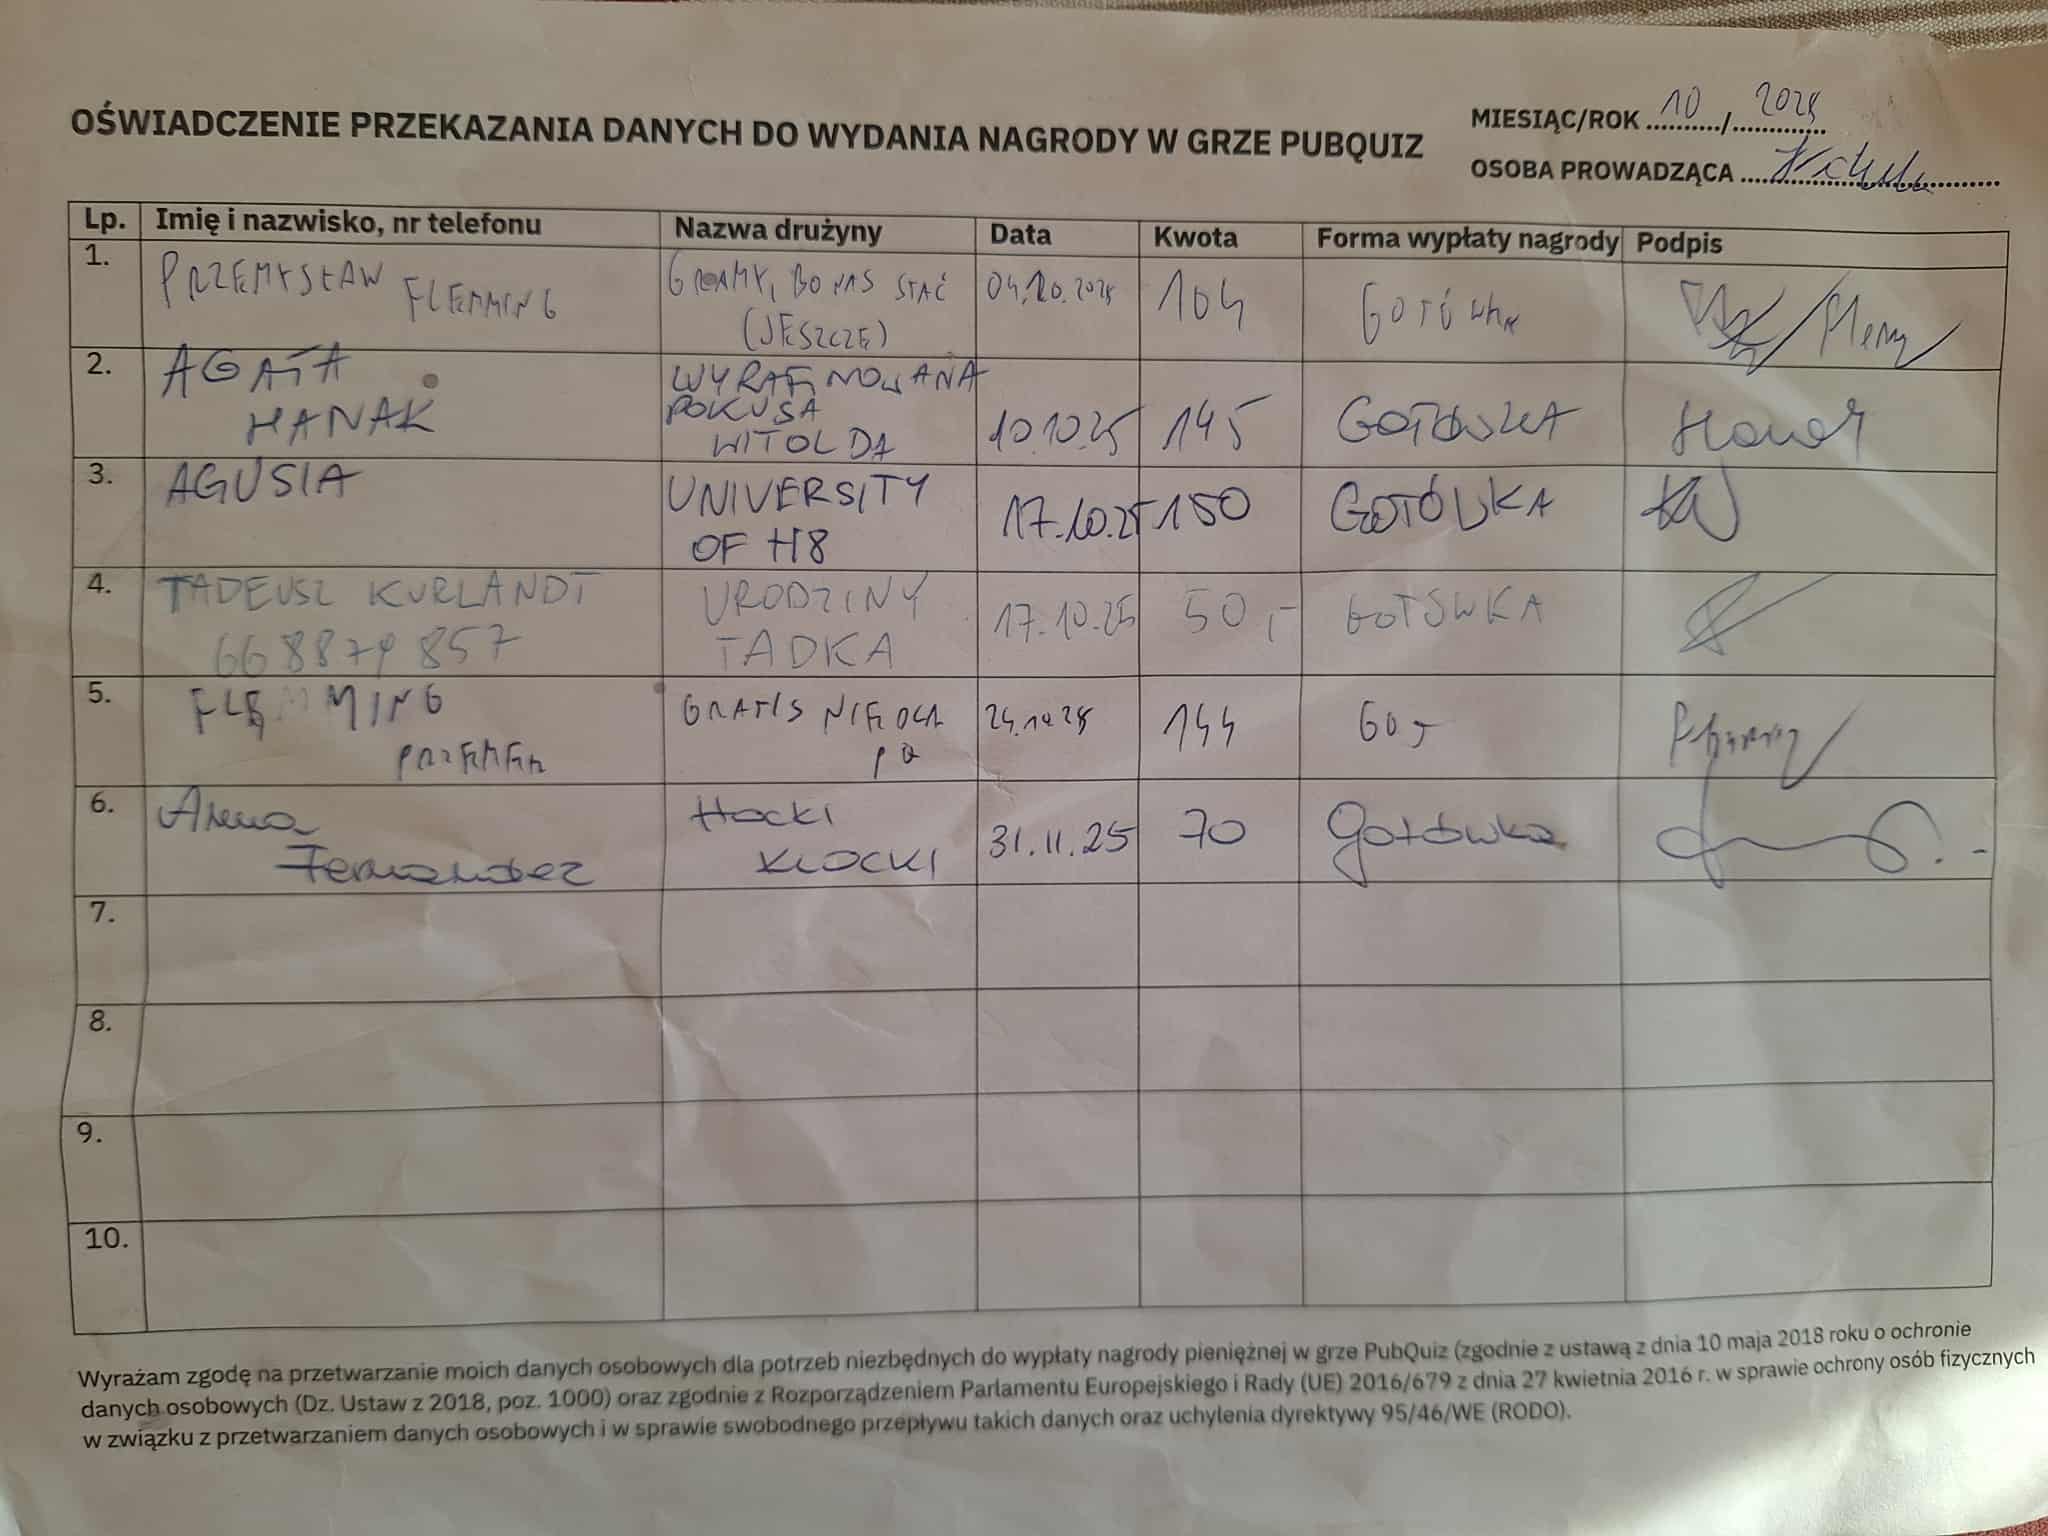 OŚWIADCZENIE PRZEKAZANIA DANYCH DO WYDANIA NAGRODY W GRZE PUBQUIZ
MIESIĄC/ROK 10 / 2025
OSOBA PROWADZĄCA
Lp. Imię i nazwisko, nr telefonu Nazwa drużyny Data Kwota Forma wypłaty nagrody Podpis
1. PRZEMYSŁAW FLEMMING GRAMY, BO NAS STAĆ (JESZCZE) 04.10.2025 104 GOTÓWKA
2. AGATA HANAK WYRAFINOWANA POKUSA WITOLDA 10.10.25 145 GOTÓWKA Hanak
3. AGUSIA UNIVERSITY OF H8 17.10.25 150 GOTÓWKA
4. TADEUSZ KURLANDT 668879857 URODZINY TADKA 17.10.25 50,- GOTÓWKA
5. FLEMMING PRZEMEK GRATIS 24.10.25 144 GO,-
6. Anna Fernandez Hocki KLOCKI 31.11.25 70 Gotówka
7.
8.
9.
10.
Wyrażam zgodę na przetwarzanie moich danych osobowych dla potrzeb niezbędnych do wypłaty nagrody pieniężnej w grze PubQuiz (zgodnie z ustawą z dnia 10 maja 2018 roku o ochronie
danych osobowych (Dz. Ustaw z 2018, poz. 1000) oraz zgodnie z Rozporządzeniem Parlamentu Europejskiego i Rady (UE) 2016/679 z dnia 27 kwietnia 2016 r. w sprawie ochrony osób fizycznych
w związku z przetwarzaniem danych osobowych i w sprawie swobodnego przepływu takich danych oraz uchylenia dyrektywy 95/46/WE (RODO).